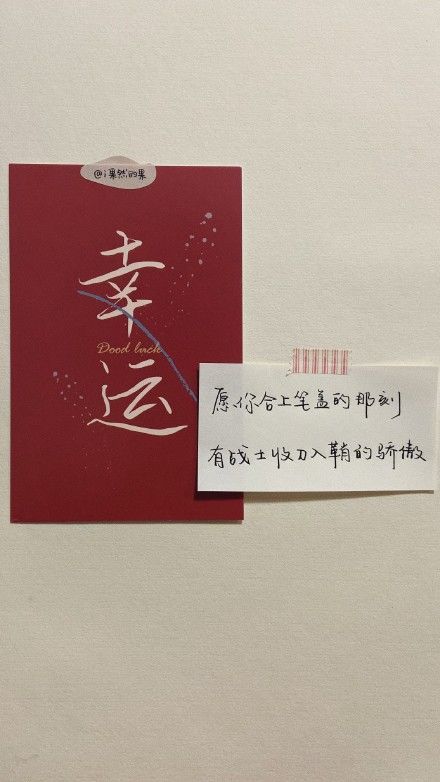 @i果然的果
幸
Dood luck
运
愿你合上笔盖的那刻
有战士收刀入鞘的骄傲